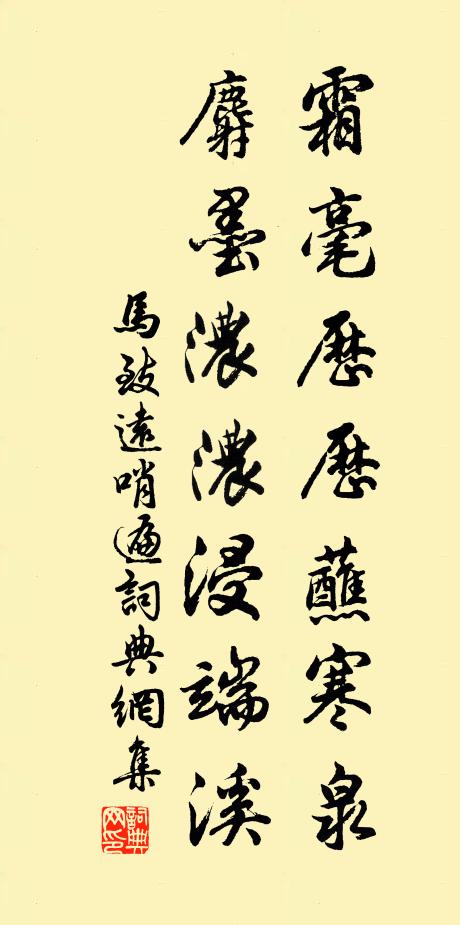 霜毫歷歷蘸寒泉
麝墨濃濃浸端溪
馬致遠哨遍詞典網集
詞典网印